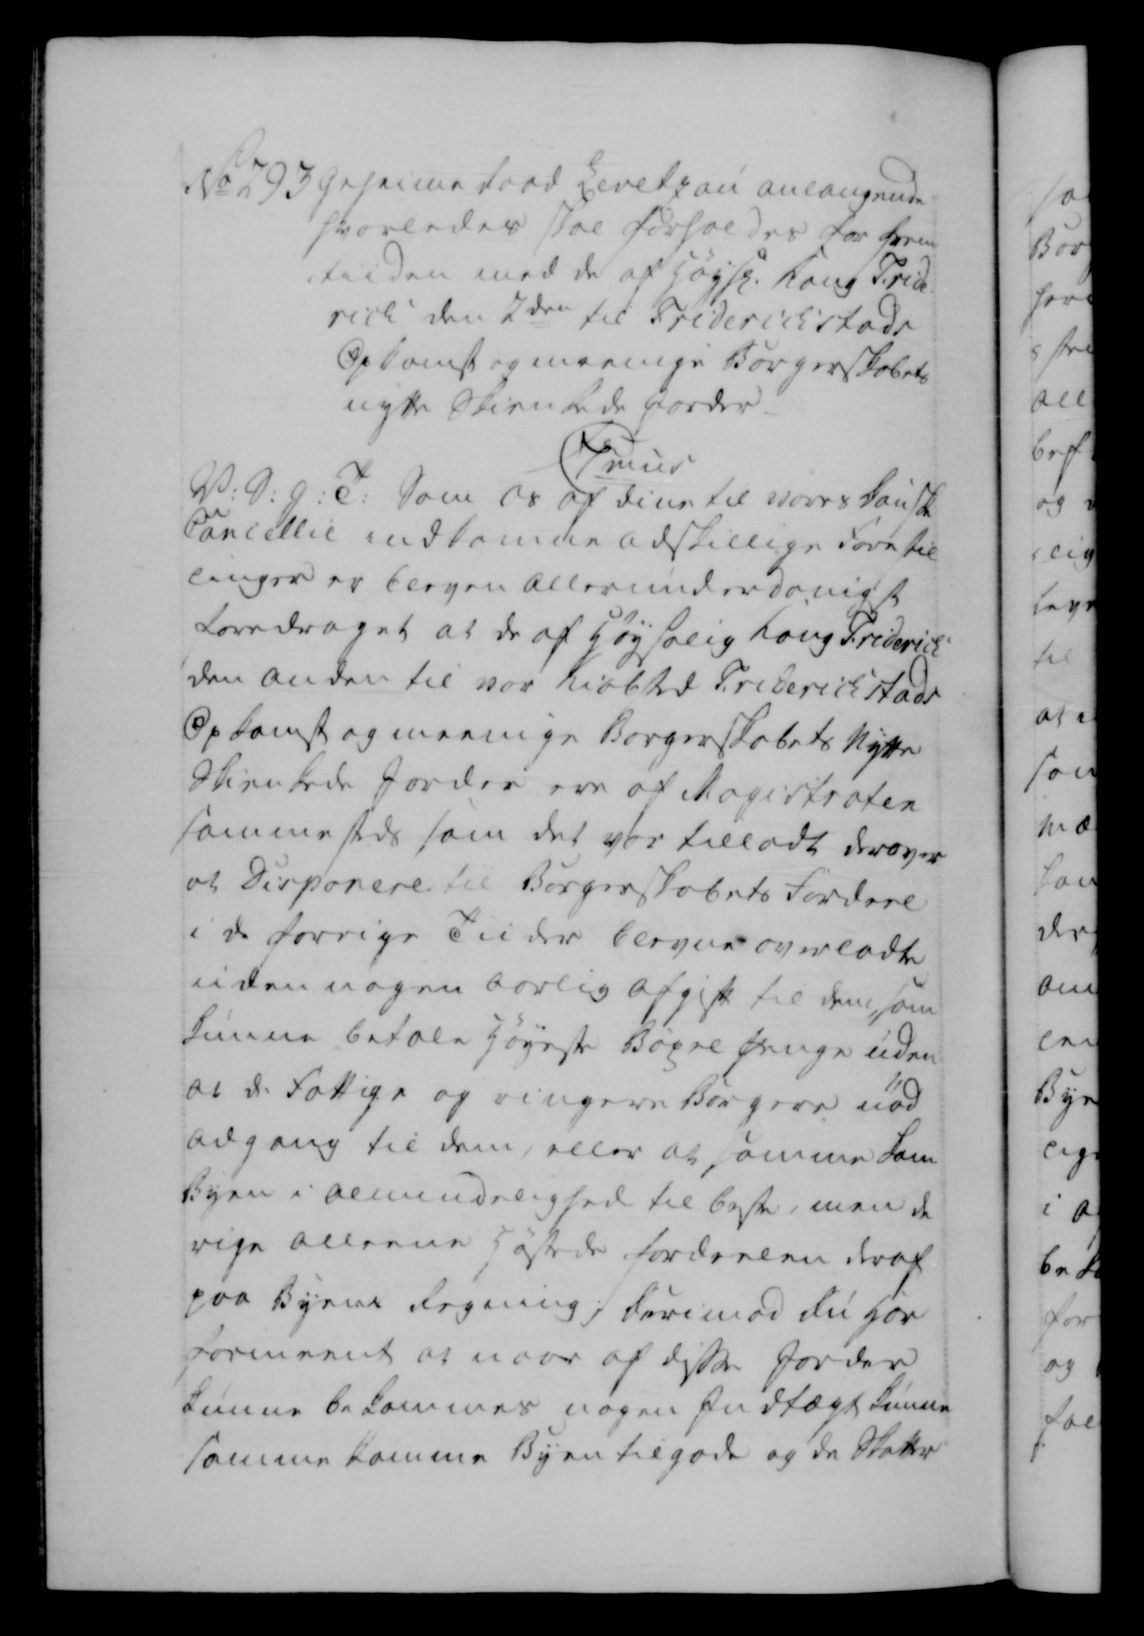 No 293 Geheime Raad Levetzau anlangende
hvorledes skal forholdes for frem
tiiden med de af Høysl. Kong Fride
rich den 2den til Friderichstads
Opkomst og meenige Borgerskabets
nytte Skienkede Jorder
V: S: g: T: Som os af dine til vores danske
Cancellie indkomne adskillige Forestil
linger er bleven allerunderdanigst
foredraget at de af Høysalig Kong Friderich
den anden til vor Kiøbsted Friderichstads
Opkomst og meenige Borgerskabets Nytte
Skienkede Jorder ere af Magistraten
sammesteds som det var tilladt derover
at Disponere til Borgerskabets Fordeel
i de forrige Tiider blevne overladte
uden nogen aarlig Afgift til dem, som
kunne betale Høyeste Bøxel Penge uden
at de Fattige og ringere Borgere nød
adgang til dem, eller at samme kom
Byen i almindelighed til beste, men de
rige alleene Høstede fordeelen deraf
paa Byens Regning; derimod du har
formeent at naar af disse Jorder
kunne bekommes nogen Indtægt kunne
samme komme Byen tilgode og de Skatter